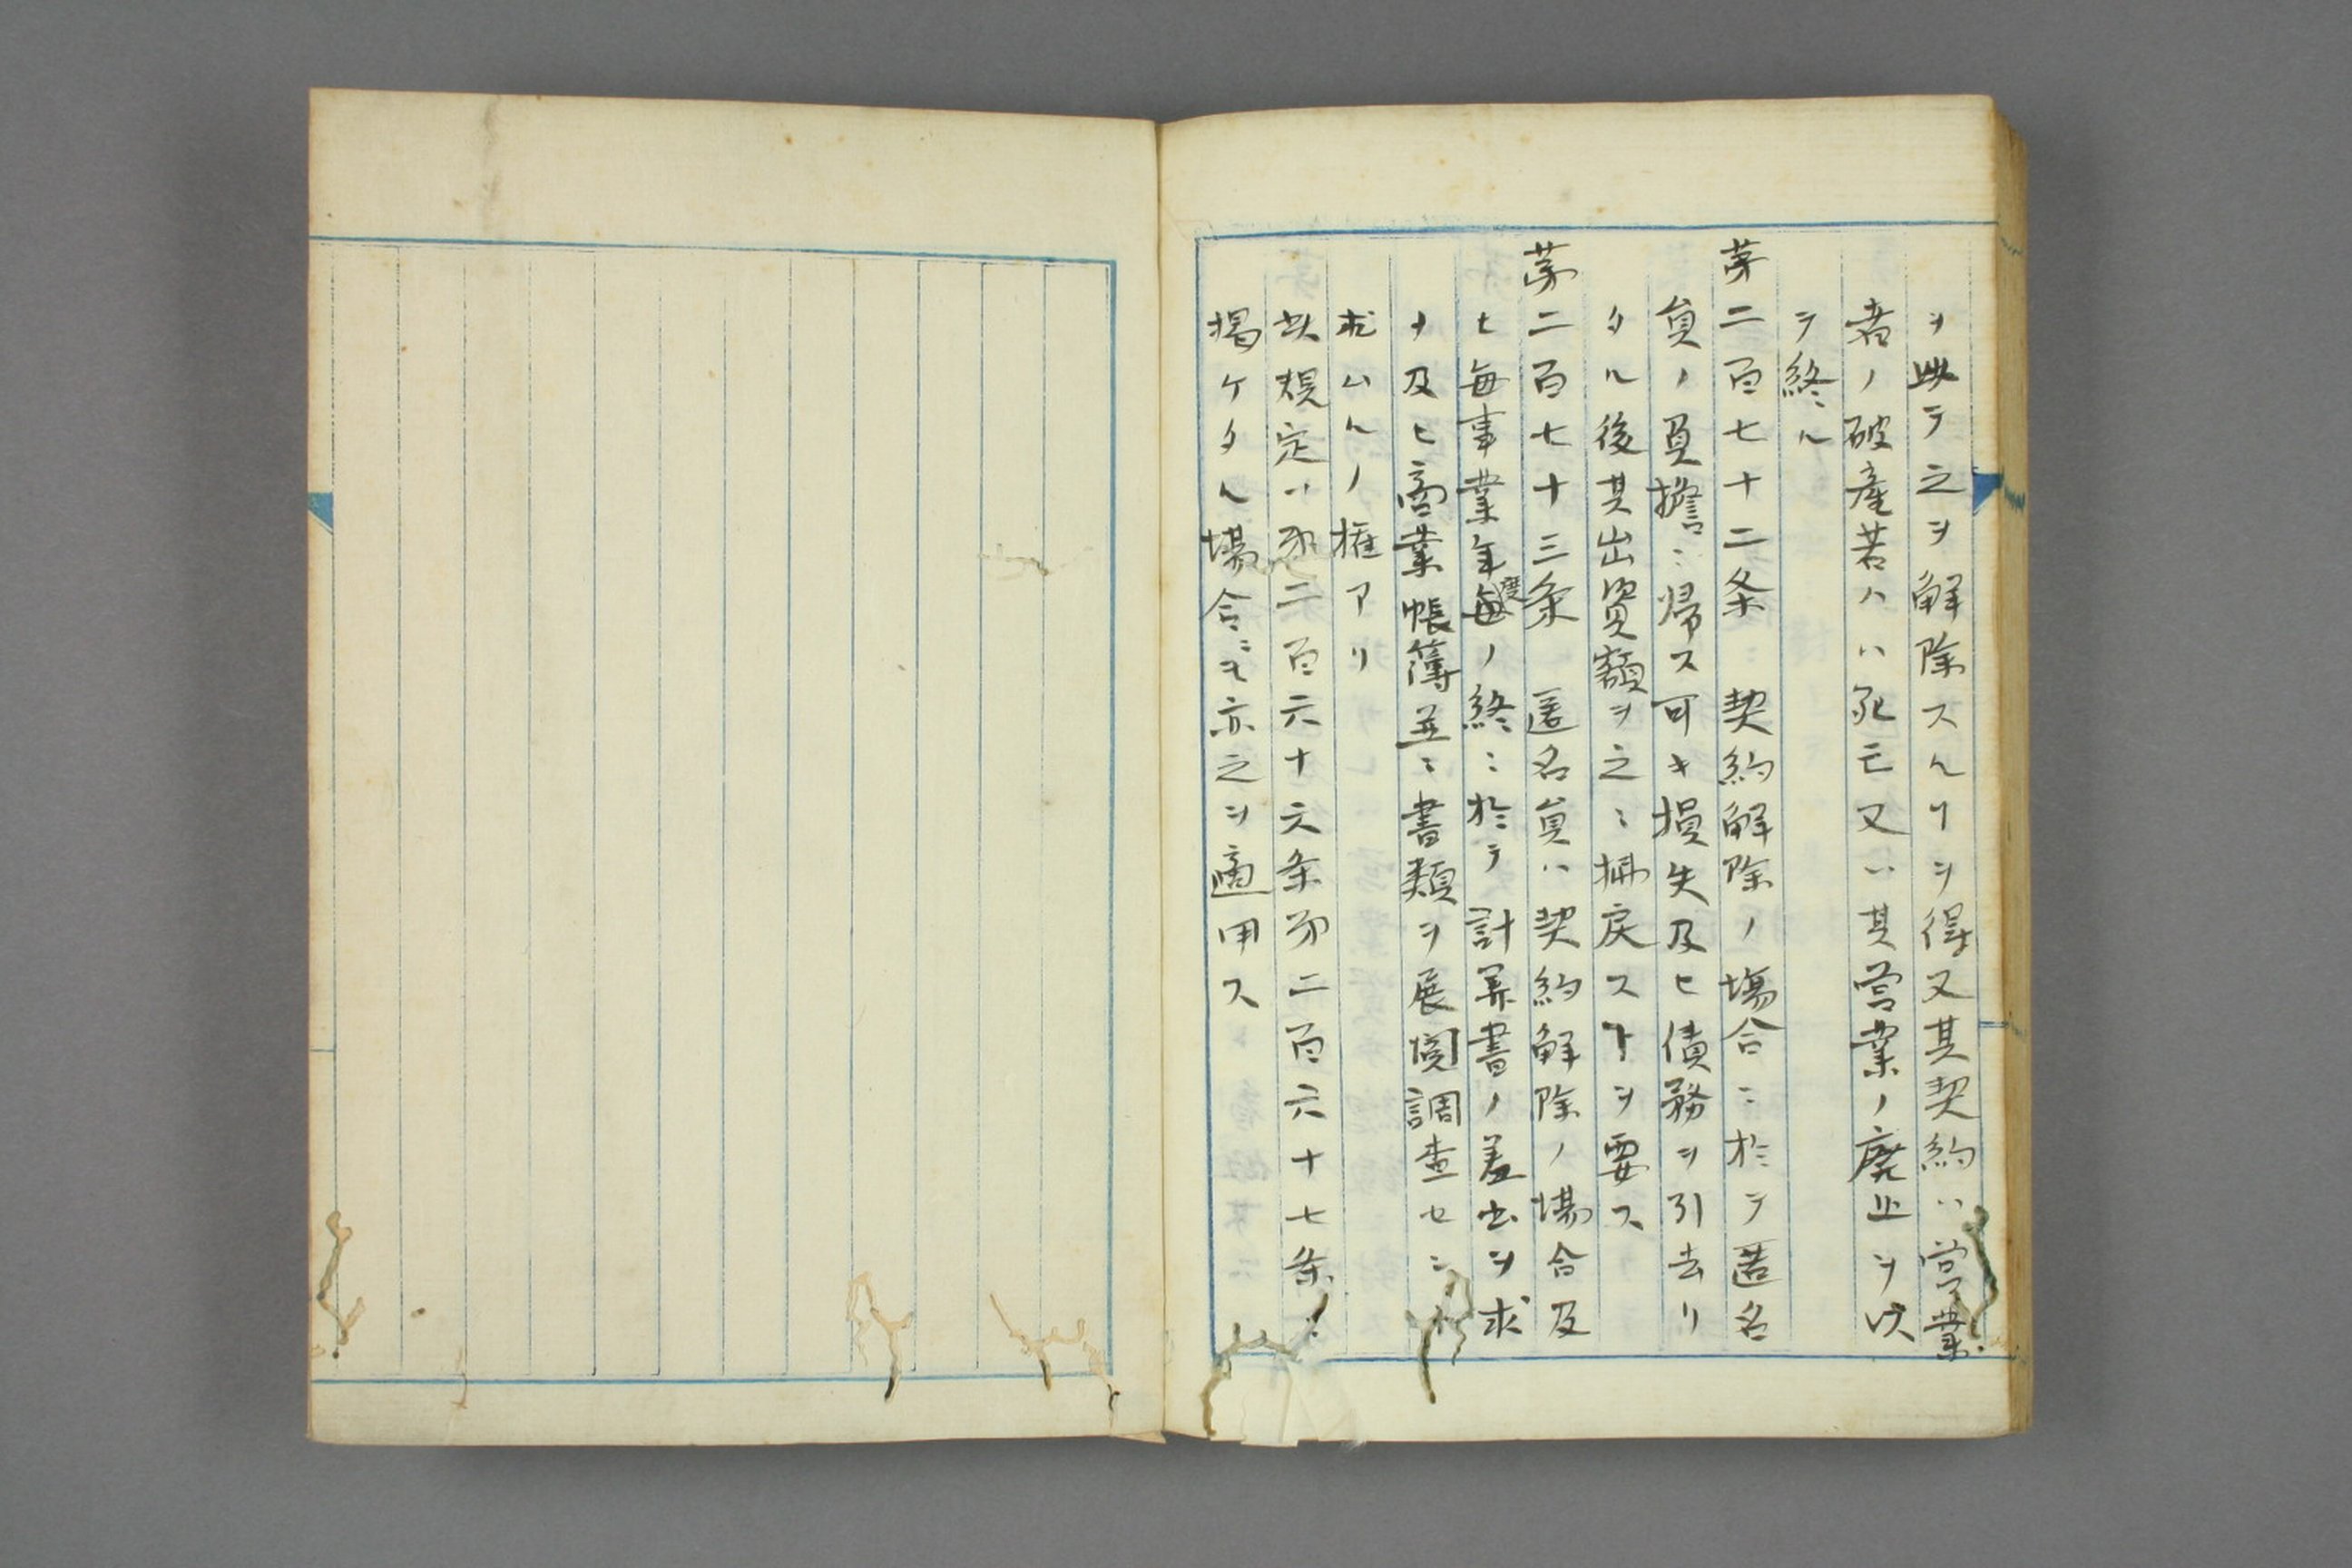 ヲ以テ之ヲ解除スルヿヲ得又其契約ハ営業
者ノ破産若クハ死亡又ハ其営業ノ廃止ヲ以
テ終ル
第二百七十二条 契約解除ノ場合ニ於テ匿名
員ノ負擔ニ帰ス可キ損失及ヒ債務ヲ引去リ
タル後其出資額ヲ之ニ拂戻スヿヲ要ス
第二百七十三条 匿名員ハ契約解除ノ場合及
ヒ毎事業年度毎ノ終ニ於テ計算書ノ差出ヲ求
メ及ヒ商業帳簿並ニ書類ヲ展閲調査セン
求ムルノ権アリ
此規定ハ第二百六十六条第二百六十七条ニ
掲ケタル場合ニモ亦之ヲ適用ス